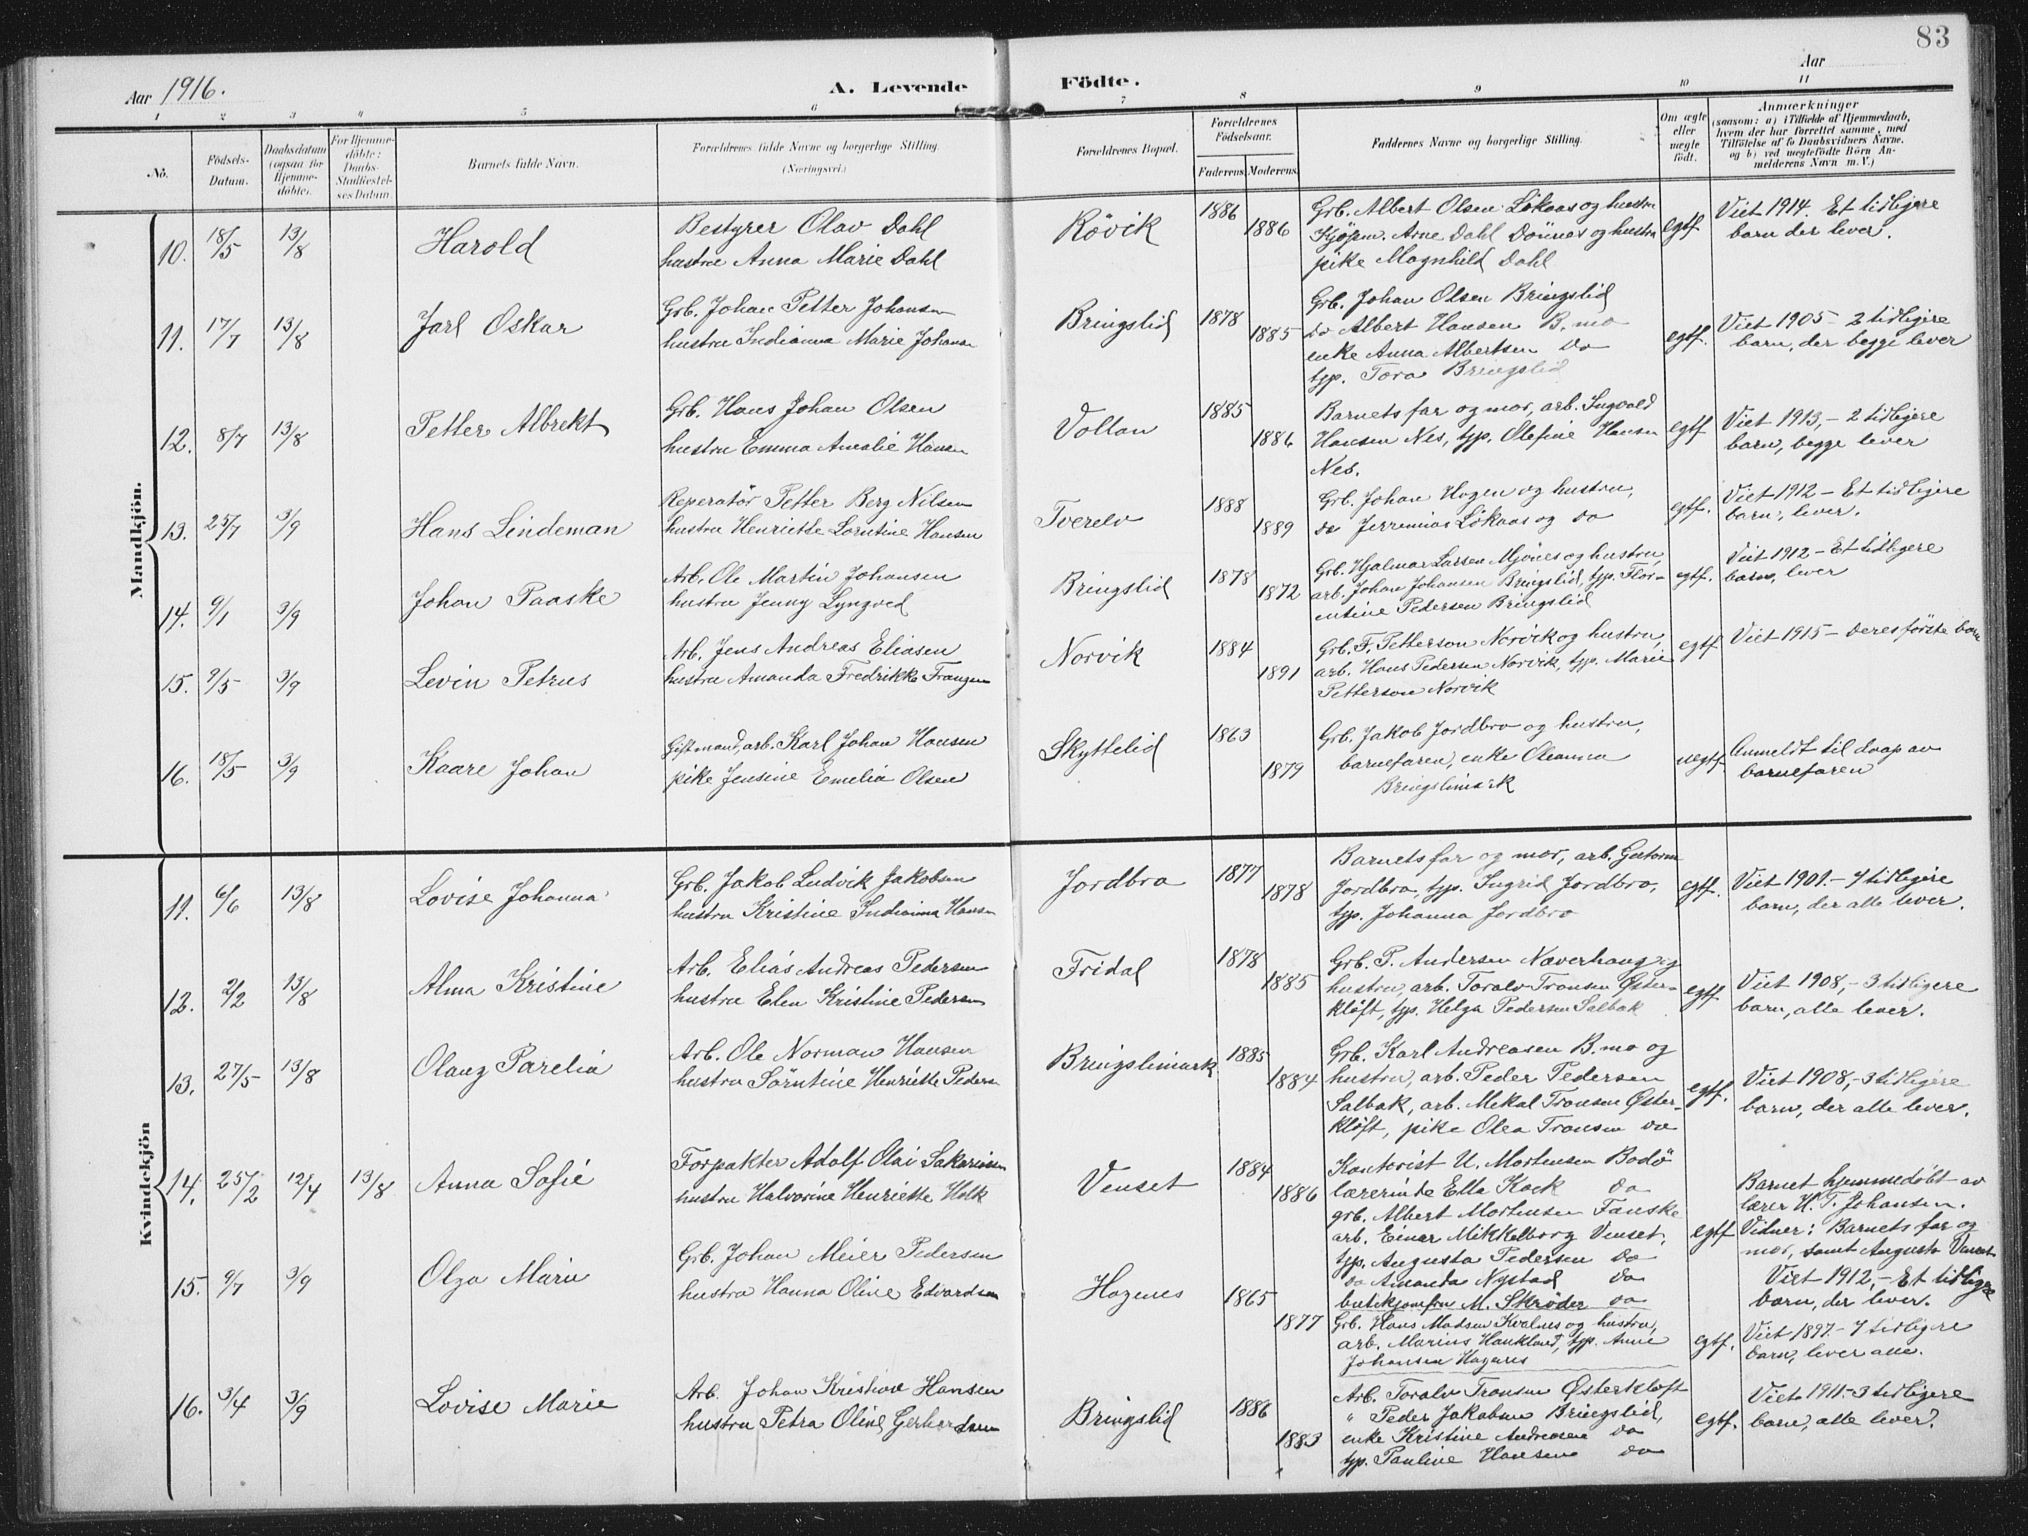 83
Aar 1916. A. Levende Födte. Aar
1 2 3 4 5 6 7 8 9 10 11
No. Födsels-Datum. Daabsdatum (ogsaa for Hjemmedöbte). For Hjemmedöbte: Daabs-Stadfæstelses Datum Barnets fulde Navn. Forældrenes fulde Navne og borgerlige Stilling. (Næringsvei.) Forældrenes Bopæl. Forældrenes Födselsaar. Faderens Moderens Faddernes Navne og borgerlige Stilling. Om ægte eller uegte födt. Anmærkninger (saasom: a) i Tilfælde af Hjemmedaab, hvem der har forrettet samme, med Tilföielse af to Daabsvidners Navne, og b) ved uegtefödte Börn Anmelderens Navn m. V.)
Mandkjön.
10. 18/5 13/8 Harold Bestyrer Olav Dahl
hustru Anna Marie Dahl
Rövik 1886 1886
Grb. Albert Olsen Lökaas og hustru
Kjöpm. Arne Dahl Dönnes og hustru
pike Magnhild Dahl
egtf Viet 1914. Et tidligere
barn der lever.
11. 17/7 13/8 Jarl Oskar Grb. Johan Petter Johansen
hustru Indianna Marie Johansen
Bringslid 1878 1885
Grb. Johan Olsen Bringslid
do Albert Hansen B.mo
enke Anna Albertsen do
typ. Tora Bringslid
egtf. Viet 1905 - 2 tidligere
barn, der begge lever
12. 8/7 13/8 Petter Albrekt Grb. Hans Johan Olsen
hustru Emma Amalie Hansen
Vollan 1885 1886
Barnets far og mor, arb. Ingvald
Hansen Nes, typ. Olefine Hansen
Nes.
egtf Viet 1913, - 2 tidligere
barn, begge lever
13. 25/7 3/9 Hans Lindeman Reperatör Petter Berg Nilsen
hustru Henriette Lorntine Hansen
Tverelv 1888 1889
Grb. Johan Hagen og hustru,
do Jerremias Lökaas og do
egtf. Viet 1912 - Et tidligere
barn, lever.
14. 9/1 3/9 Johan Paaske Arb. Ole Martin Johansen
hustru Jenny Lyngved
Bringslid 1878 1872
Grb. Hjalmar Larsen Mjönes og hustru,
arb. Johan Johansen Bringslid, typ. Flor-
entine Pedersen Bringslid
egtf. Viet 1912 - Et tidligere
barn, lever
15. 9/5 3/9 Levin Petrus Arb. Jens Andreas Eliasen
hustru Amanda Fredrikke
Norvik 1884 1891
Grb. F. Petterson Norvik og hustru,
arb. Hans Pedersen Norvik, typ. Marie
Petterson Norvik
egtf Viet 1915 - deres förste barn
16. 18/5 3/9 Kaare Johan Gift mand, arb. Karl Johan Hansen
pike Jensine Emelia Olsen
Skyttelid 1863 1879
Grb. Jakob Jordbro og hustru,
barnefaren, enke Oleanna
Bringslimark
uegtf. Anmeldt til daap av
barnefaren
Kvindekjön
11. 6/6 13/8 Lovise Johanna Grb. Jakob Ludvik Jakobsen
hustru Kristine Indianna Hansen
Jordbro 1877 1878
Barnets far og mor, arb.
Jordbro, typ. Ingrid Jordbro,
typ. Johanna Jordbro
egtf. Viet 1901. - 4 tidligere
barn, der alle lever.
12. 2/2 13/8 Alma Kristine Arb. Elias Andreas Pedersen
hustru Elen Kristine Pedersen
Fridal 1878 1885
Grb. P. Andersen Næverhaug og
hustru, arb. Toralv Transen Öster-
klöft, typ. Helga Pedersen Salbak
egtf. Viet 1908, - 3 tidligere
barn, alle lever.
13. 27/5 13/8 Olaug Parelia Arb. Ole Norman Hansen
hustru Sörntine Henriette Pedersen
Bringslimark 1885 1884
Grb. Karl Andreasen B.mo og
hustru, arb. Peder Pedersen
Salbak, arb. Mekal Transen Öster-
klöft, pike Olea Transen do
egtf. Viet 1908, - 3 tidligere
barn, der alle lever.
14. 25/2 12/4 13/8 Anna Sofie Forpakter Adolf Olai Sakariasen
hustru Halvorine Henriette Holk
Venset 1884 1886
Kontorist U. Mortensen Bodö
lærerinde Ella Kock do
grb. Albert Mortensen Fauske
arb. Einar Mikkelborg Venset,
typ. Augusta Pedersen do
do Amanda Nystad do
butikjomfru M. Skröder do
egtf Barnet hjemmedöbt av
lærer H. T. Johansen.
Vidner: Barnets far og
mor, samt Augusta Venset
Viet 1912, - Et tidligere
barn, der lever.
15. 9/7 3/9 Olga Marie Grb. Johan Meier Pedersen
hustru Hanna Oline Edvardsen
Hagenes 1865 1877
Grb. Hans Madsen Kvalnes og hustru,
arb. Marius Haukland, typ. Anne
Johansen Hagenes
egtf. Viet 1897. - 4 tidligere
barn, lever alle.
16. 3/4 3/9 Lovise Marie Arb. Johan Kristian Hansen
hustru Petra Oline Gerhardsen
Bringslid 1886 1883
Arb. Toralv Transen Österklöft
" Peder Jakobsen Bringslid,
enke Kristine Andreasen do
typ. Pauline Hansen do
egtf. Viet 1911 - 3 tidligere
barn, alle lever.